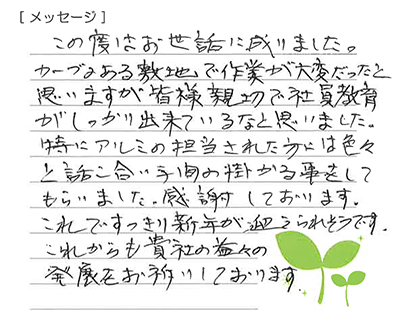 [ メッセージ ]
この度はお世話に成りました。
カーブのある敷地で作業が大変だったと
思いますが皆様親切で社員教育
がしっかり出来ているなと思いました。
特にアルミの担当された方には色々
と話し合い手間の掛かる事をして
もらいました。感謝しております。
これですっきり新年が迎えられそうです。
これからも貴社の益々の
発展をお祈りしております。